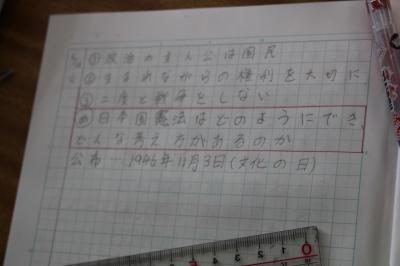 ①政治の主人公は国民
②生まれながらの権利を大切に
③二度と戦争をしない
め 日本国憲法はどのようにでき、
どんな考え方があるのか
公布…1946年11月3日(文化の日)
0 1 2 3 4